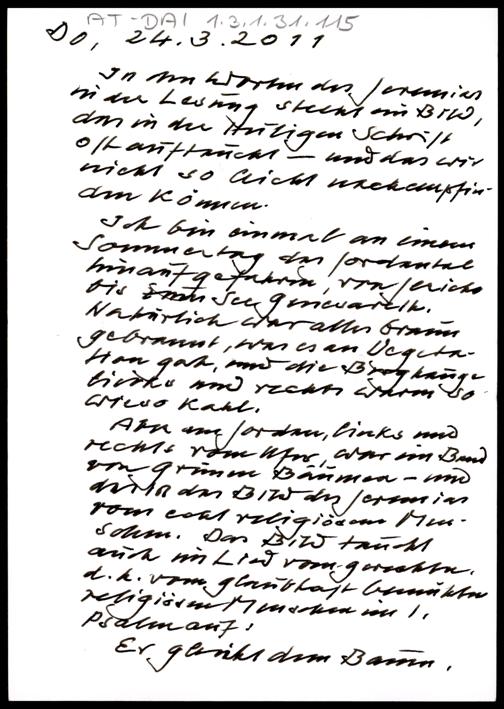 AT-DAI 1.3.1.31.115
Do, 24.3.2011
In den Worten des Jeremias
in der Lesung steckt ein Bild,
das in der Heiligen Schrift
oft auftaucht – und das wir
nicht so leicht nachempfin-
den können.
Ich bin einmal an einem
Sommertag das Jordantal
hinaufgefahren, von Jericho
bis See Genesareth.
Natürlich war alles braun
gebrannt, was es an Vegeta-
tion gab, und die Berghänge
links und rechts waren so-
wieso kahl.
Aber am Jordan, links und
rechts vom Ufer, war ein Band
von grünen Bäumen – und
das Bild des Jeremias
vom echt religiösen Men-
schen. Das Bild taucht
auch im Lied vom gerechten,
d.h. vom glaubhaft bemühten
religiösen Menschen im 1.
Psalm auf:
Er gleicht dem Baum,